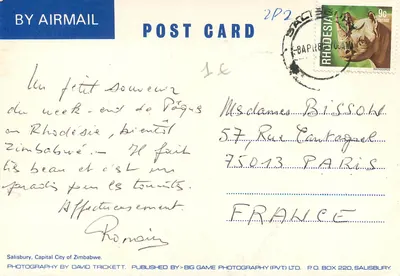 BY AIRMAIL
POST CARD
2P2
1€
9c
RHODESIA
Un petit souvenir
du week-end de Pâques
en Rhodesie, bientôt
Zimbabwe. Il fait
très beau et c'est un
paradis pour les touristes.
Affectueusement
Romain
Mesdames BISSON
57, Rue Cantagrel
75013 PARIS
FRANCE
Salisbury, Capital City of Zimbabwe.
PHOTOGRAPHY BY DAVID TRICKETT. PUBLISHED BY:- BIG GAME PHOTOGRAPHY (PVT) LTD. P.O. BOX 220, SALISBURY